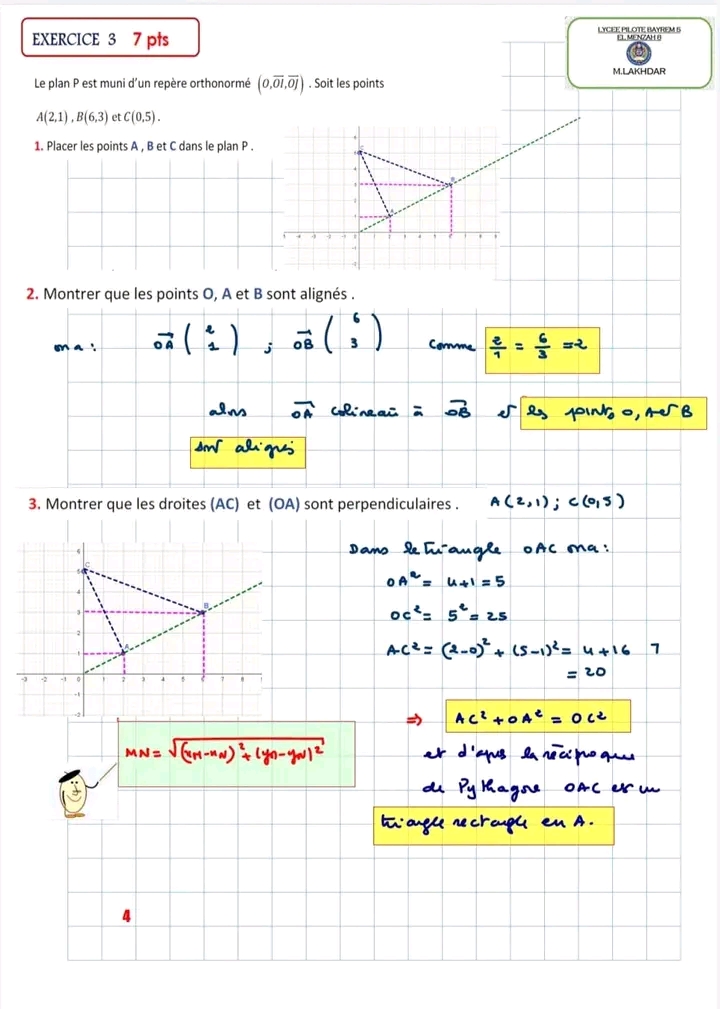 EXERCICE 3 7 pts
LYCEE PILOTE BAYREM 5
EL MENZAH 8
M.LAKHDAR
Le plan P est muni d'un repère orthonormé (O,OI,OJ) . Soit les points
A(2,1) , B(6,3) et C(0,5) .
1. Placer les points A , B et C dans le plan P .
2. Montrer que les points O, A et B sont alignés .
on a : OA (2 1) ; OB (6 3) Comme 2/1 = 6/3 = 2
alors OA colineaire à OB et les points O, A et B
sont alignés
3. Montrer que les droites (AC) et (OA) sont perpendiculaires . A(2,1) ; C(0,5)
Dans le triangle OAC on a :
OA² = 4+1 = 5
OC² = 5² = 25
AC² = (2-0)² + (5-1)² = 4+16
= 20
⇒ AC² + OA² = OC²
MN = √(xM-xN)² + (yM-yN)²
et d'après la réciproque
de Pythagore OAC est un
triangle rectangle en A.
4